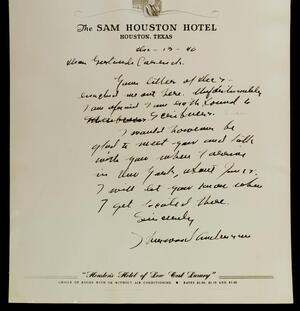 The SAM HOUSTON HOTEL
HOUSTON, TEXAS
Dec - 13 - 40
Dear Gertrude
Your letter of Dec 5 -
reached me out here. Unfortunately
I am afraid I am both bound to
Scribners.
I would however be
glad to meet you and talk
with you when I
in New York, about Jan 1.
I will let you know when
I get located there.
Sincerely
Sherwood Anderson
"Houston's Hotel of Low Cost Luxury"
CHOICE OF ROOMS WITH OR WITHOUT AIR CONDITIONING • RATES $2.00, $2.50 AND $3.00